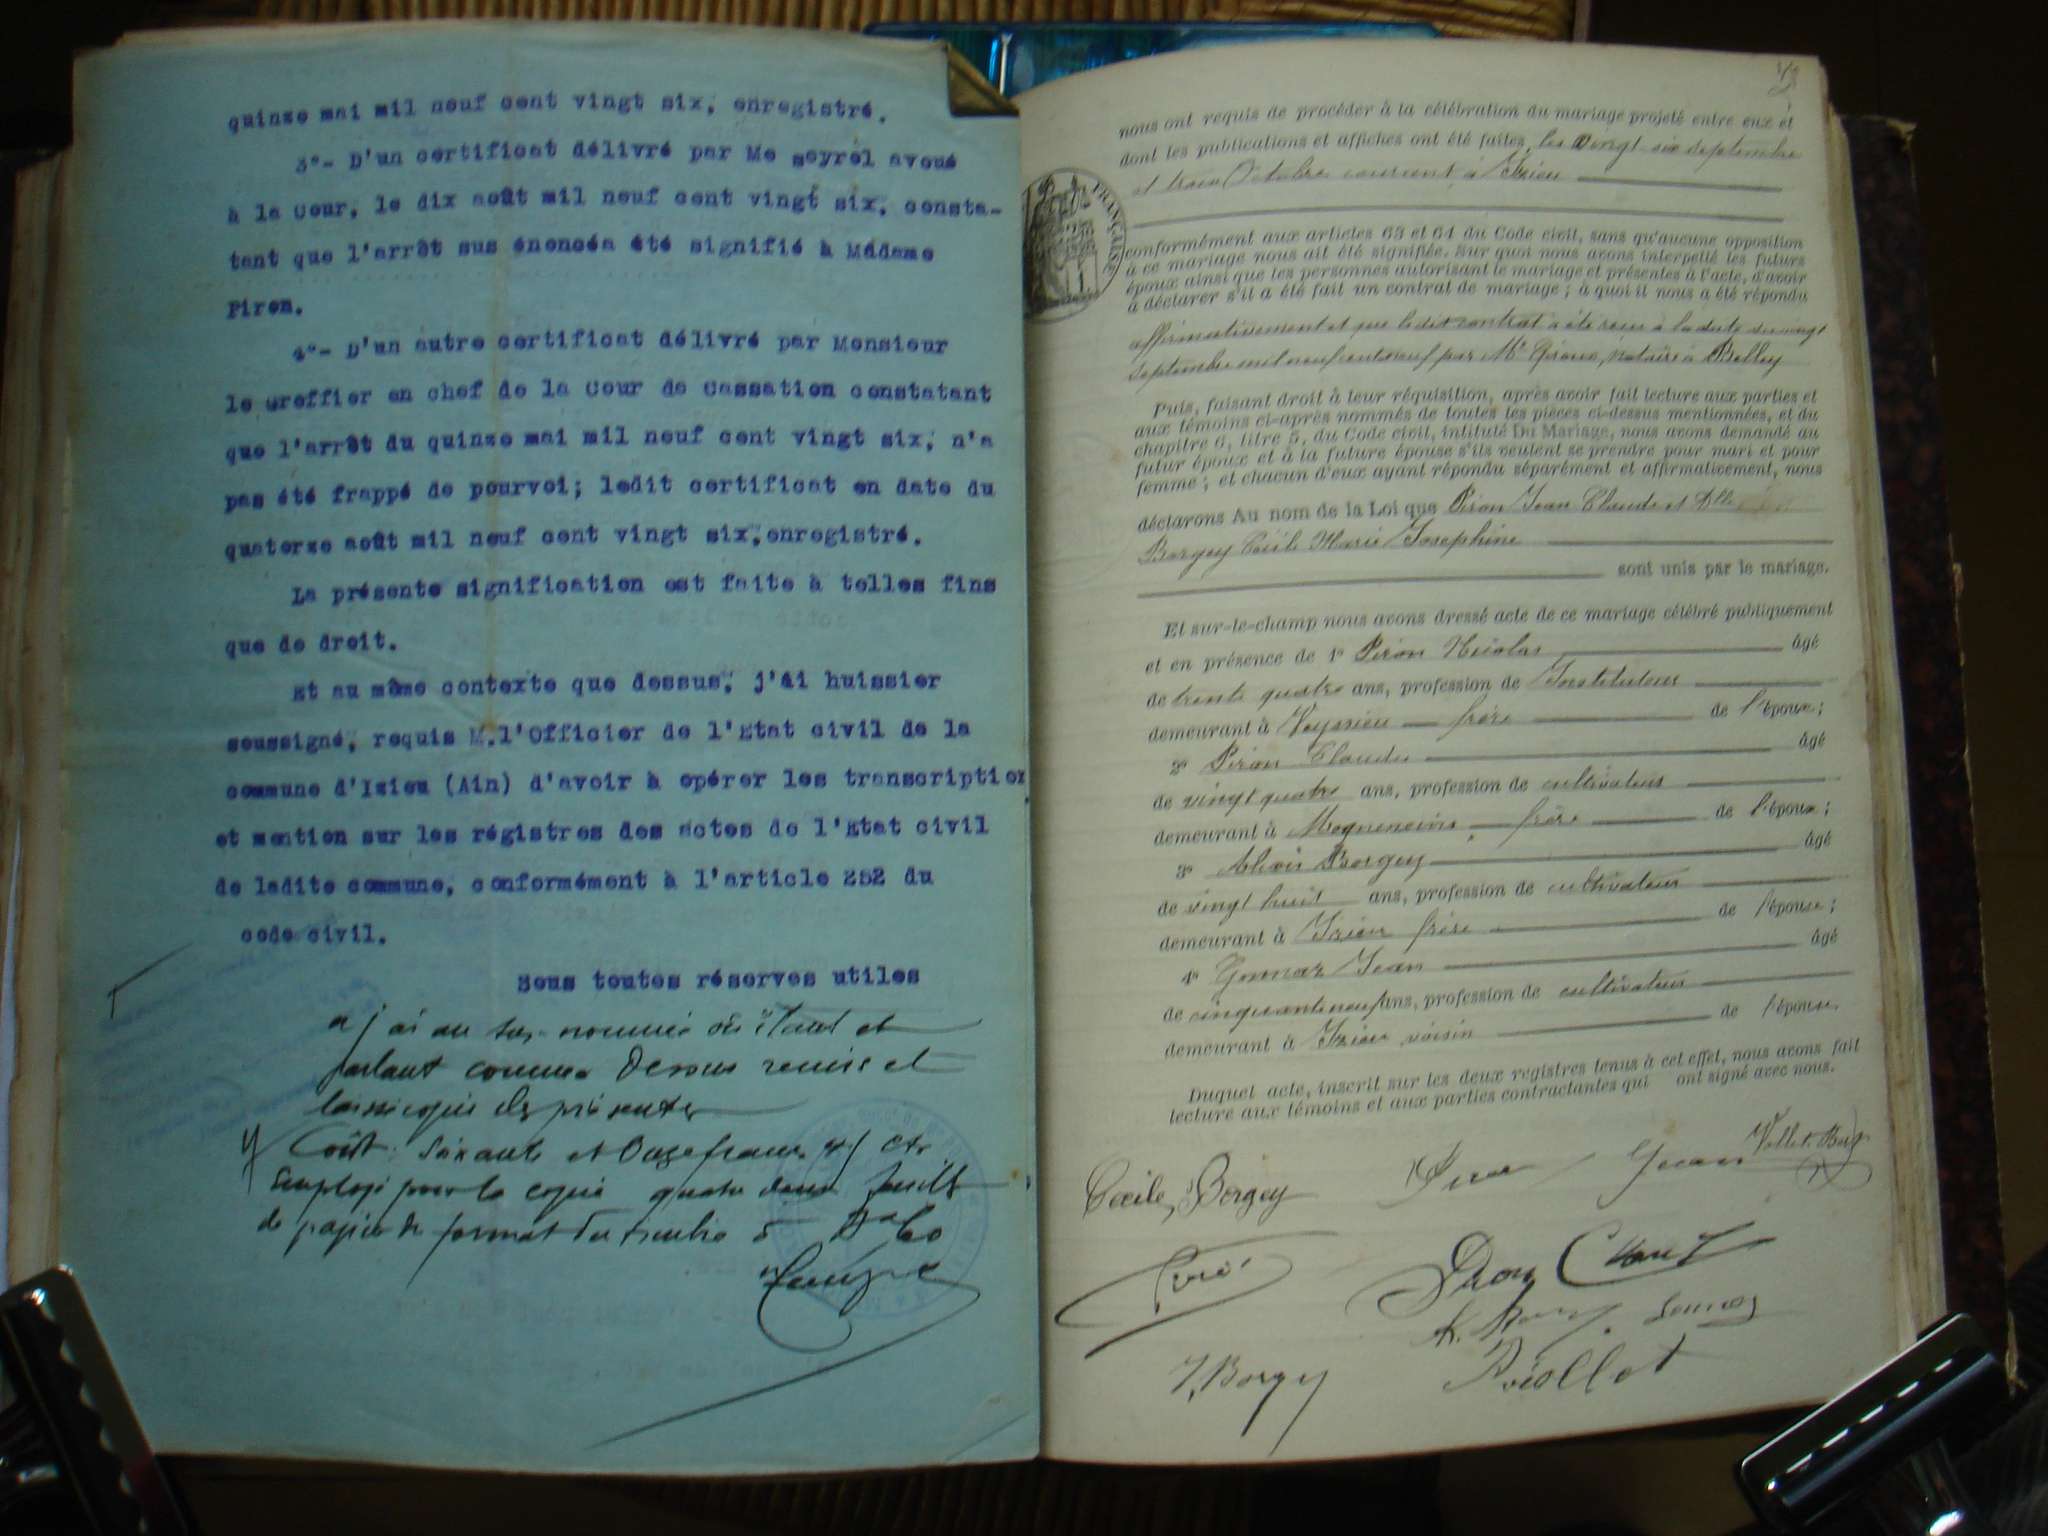 quinze mai mil neuf cent vingt six, enregistré.
3°- D'un certificat délivré par Me Seyrol avoué
à la cour, le dix août mil neuf cent vingt six, consta-
tant que l'arrêt sus énoncéa été signifié à Madame
Piron.
4°- D'un autre certificat délivré par Monsieur
le Greffier en chef de la Cour de Cassation constatant
que l'arrêt du quinze mai mil neuf cent vingt six, n'a
pas été frappé de pourvoi; ledit certificat en date du
quatorze août mil neuf cent vingt six,enregistré.
La présente signification est faite à telles fins
que de droit.
Et au même contexte que dessus, j'ai huissier
soussigné, requis M.l'Officier de l'Etat civil de la
commune d'Izieu (Ain) d'avoir à opérer les transcription
et mention sur les régistres des actes de l'Etat civil
de ladite commune, conformément à l'article 252 du
code civil.
Sous toutes réserves utiles
j'ai au sus-nommé où étant et
parlant comme Dessus remis et
laissé copie des présentes
Coût: Soixante et Onze francs cts
Employé pour la copie quatre demi feuilles
de papier de format du timbre à
nous ont requis de procéder à la célébration du mariage projeté entre eux et
dont les publications et affiches ont été faites, les vingt six septembre
et trois Octobre courant à Izieu
FRANÇAISE
conformément aux articles 63 et 64 du Code civil, sans qu'aucune opposition
à ce mariage nous ait été signifiée. Sur quoi nous avons interpellé les futurs
époux ainsi que les personnes autorisant le mariage et présentes à l'acte, d'avoir
à déclarer s'il a été fait un contrat de mariage; à quoi il nous a été répondu
affirmativement et que le dit contrat a été reçu à la date du vingt
septembre mil neuf cent neuf par Me Giroux, notaire à Belley
Puis, faisant droit à leur réquisition, après avoir fait lecture aux parties et
aux témoins ci-après nommés de toutes les pièces ci-dessus mentionnées, et du
chapitre 6, titre 5, du Code civil, intitulé Du Mariage, nous avons demandé au
futur époux et à la future épouse s'ils veulent se prendre pour mari et pour
femme; et chacun d'eux ayant répondu séparément et affirmativement, nous
déclarons Au nom de la Loi que Piron Jean Claude et Dlle
Borgey Cécile Marie Josephine
sont unis par le mariage.
Et sur-le-champ nous avons dressé acte de ce mariage célébré publiquement
et en présence de 1° Piron Nicolas âgé
de trente quatre ans, profession de Instituteur
demeurant à Veyssieu frère de l'époux;
2° Piron Claude âgé
de vingt quatre ans, profession de cultivateur
demeurant à Mogneneins, frère de l'époux;
3° Alexis Borgey âgé
de vingt huit ans, profession de cultivateur
demeurant à Izieu frère de l'épouse;
4° Gonnaz Jean âgé
de cinquante neuf ans, profession de cultivateur
demeurant à Izieu, voisin de l'épouse.
Duquel acte, inscrit sur les deux registres tenus à cet effet, nous avons fait
lecture aux témoins et aux parties contractantes qui ont signé avec nous.
Cécile Borgey
J. Borgey